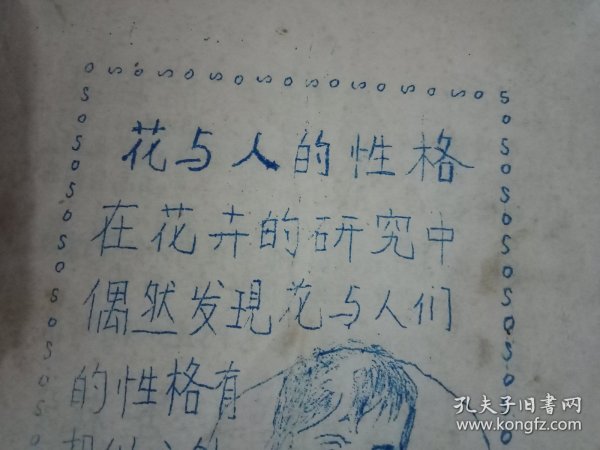 花与人的性格
在花卉的研究中
偶然发現花与人们
的性格有
孔夫子旧书网
www.kongfz.com